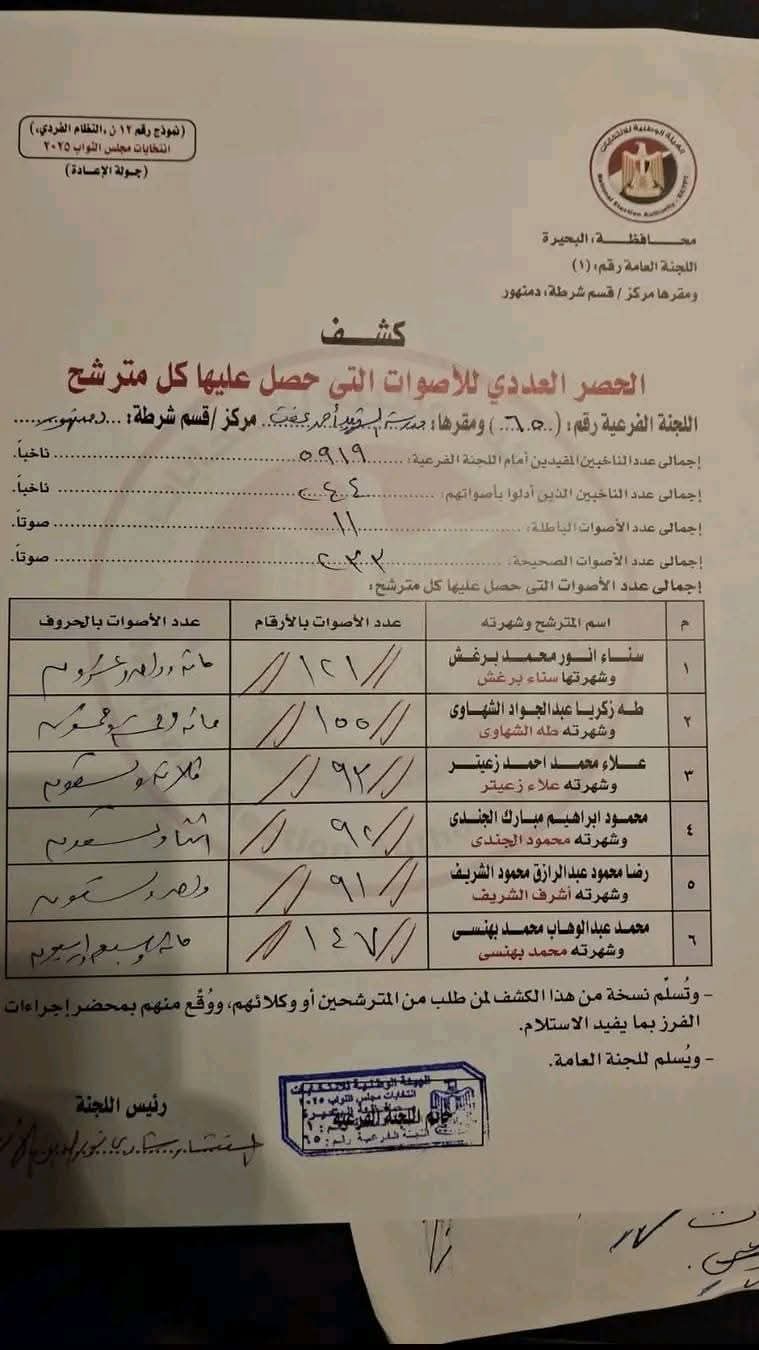 (نموذج رقم ١٢ ن، النظام الفردي،)
انتخابات مجلس النواب ٢٠٢٥
(جولة الإعادة)
الهيئة الوطنية للانتخابات
National Election Authority - EGYPT
محافظة: البحيرة
اللجنة العامة رقم: (١)
ومقرها مركز / قسم شرطة: دمنهور
كشف
الحصر العددي للأصوات التي حصل عليها كل مترشح
اللجنة الفرعية رقم: (٦٥) ومقرها: مدرسة أحمد مركز /قسم شرطة: دمنهور
إجمالى عدد الناخبين المقيدين أمام اللجنة الفرعية: ٥٩١٩ ناخباً.
إجمالى عدد الناخبين الذين أدلوا بأصواتهم: ٢٤٤ ناخباً.
إجمالى عدد الأصوات الباطلة: ١١ صوتاً.
إجمالى عدد الأصوات الصحيحة: ٢٣٣ صوتاً.
إجمالى عدد الأصوات التى حصل عليها كل مترشح:
م اسم المترشح وشهرته عدد الأصوات بالأرقام عدد الأصوات بالحروف
١ سناء انور محمد برغش // ١٢١ // مائة وواحد وعشرون
وشهرتها سناء برغش
٢ طه زكريا عبدالجواد الشهاوى // ١٥٥ // مائة وخمسة وخمسون
وشهرته طه الشهاوى
٣ علاء محمد احمد زعيتر // ٩٣ // ثلاثة وتسعون
وشهرته علاء زعيتر
٤ محمود ابراهيم مبارك الجندى // ٩٢ // اثنا وتسعون
وشهرته محمود الجندى
٥ رضا محمود عبدالرازق محمود الشريف // ٩١ // واحد وتسعون
وشهرته أشرف الشريف
٦ محمد عبدالوهاب محمد بهنسى // ١٤٧ // مائة وسبعة وأربعون
وشهرته محمد بهنسى
- وتُسلّم نسخة من هذا الكشف لمن طلب من المترشحين أو وكلائهم، ووُقّع منهم بمحضر إجراءات
الفرز بما يفيد الاستلام.
- ويُسلم للجنة العامة.
رئيس اللجنة
المستشار
الهيئة الوطنية للانتخابات
انتخابات مجلس النواب ٢٠٢٥
خاتم اللجنة الفرعية
لجنة الفرعية رقم: ٦٥